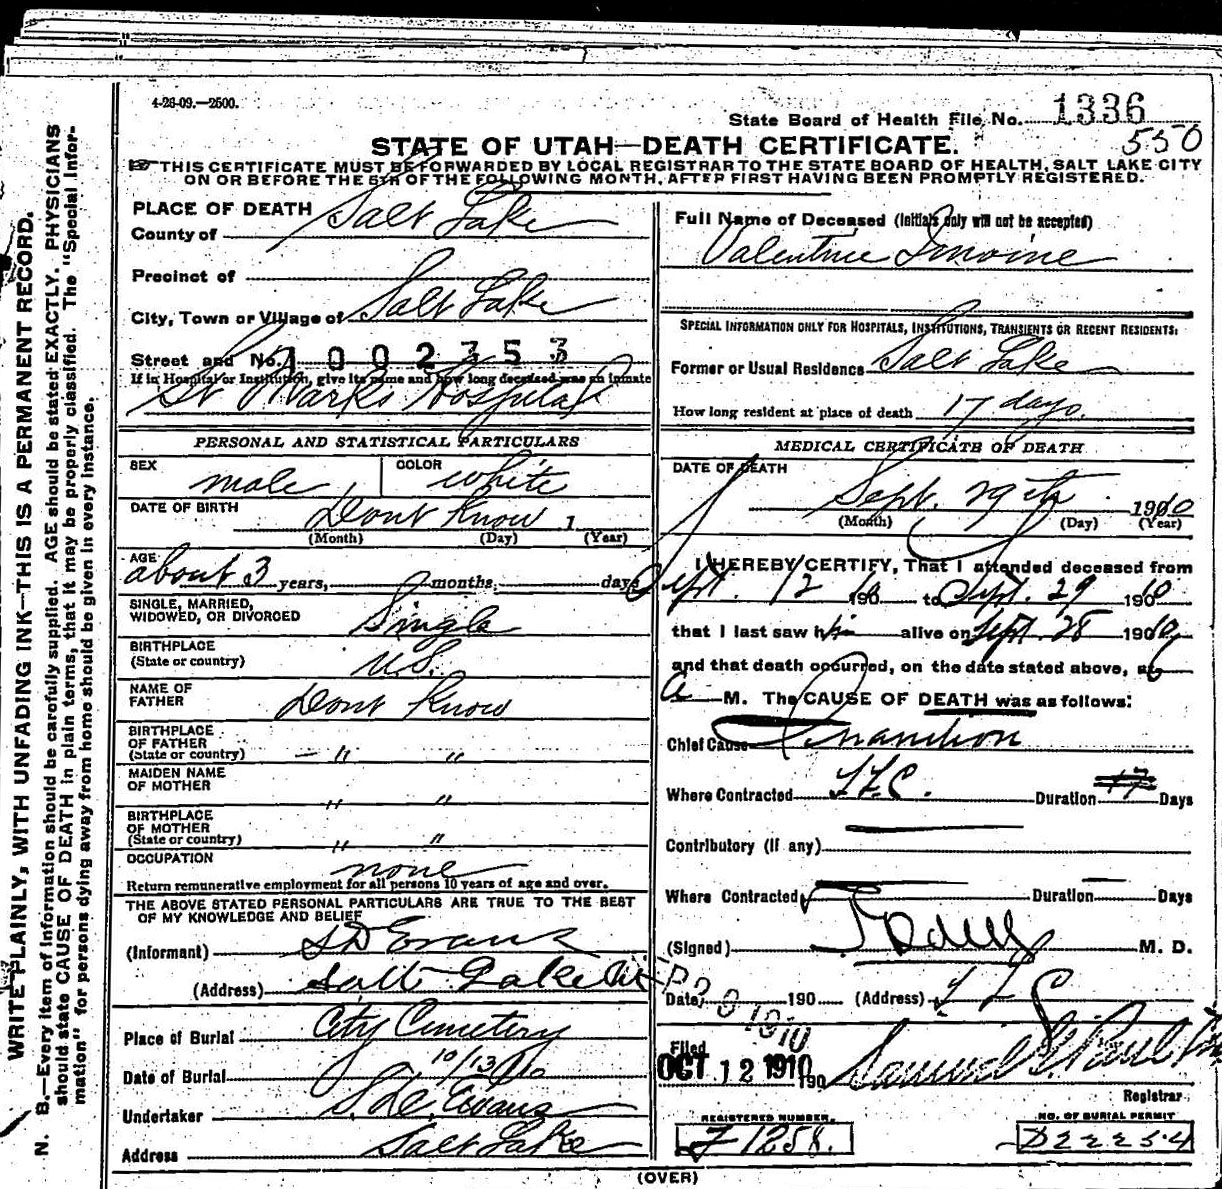 4-26-09.—2500.
State Board of Health File No. 1336
550
STATE OF UTAH—DEATH CERTIFICATE.
THIS CERTIFICATE MUST BE FORWARDED BY LOCAL REGISTRAR TO THE STATE BOARD OF HEALTH, SALT LAKE CITY
ON OR BEFORE THE 5TH OF THE FOLLOWING MONTH, AFTER FIRST HAVING BEEN PROMPTLY REGISTERED.
WRITE PLAINLY, WITH UNFADING INK—THIS IS A PERMANENT RECORD.
N. B.—Every item of information should be carefully supplied. AGE should be stated EXACTLY. PHYSICIANS
should state CAUSE OF DEATH in plain terms, that it may be properly classified. The "Special Infor-
mation" for persons dying away from home should be given in every instance.
PLACE OF DEATH
County of Salt Lake
Precinct of
City, Town or Village of Salt Lake
Street and No. 1002753
If in Hospital or Institution, give its name and how long deceased was an inmate
St Marks Hospital
PERSONAL AND STATISTICAL PARTICULARS
SEX male COLOR white
DATE OF BIRTH Dont Know 1
(Month) (Day) (Year)
AGE about 3 years, months, days
SINGLE, MARRIED,
WIDOWED, OR DIVORCED Single
BIRTHPLACE
(State or country) U.S.
NAME OF
FATHER Dont Know
BIRTHPLACE
OF FATHER
(State or country) — " "
MAIDEN NAME
OF MOTHER " "
BIRTHPLACE
OF MOTHER
(State or country) " "
OCCUPATION none
Return remunerative employment for all persons 10 years of age and over.
THE ABOVE STATED PERSONAL PARTICULARS ARE TRUE TO THE BEST
OF MY KNOWLEDGE AND BELIEF
(Informant) S D Evans
(Address) Salt Lake
Place of Burial City Cemetery
Date of Burial 10/13/10
Undertaker S. D. Evans
Address Salt Lake
Full Name of Deceased (Initials only will not be accepted)
Valentine
SPECIAL INFORMATION ONLY FOR HOSPITALS, INSTITUTIONS, TRANSIENTS OR RECENT RESIDENTS:
Former or Usual Residence Salt Lake
How long resident at place of death 17 days.
MEDICAL CERTIFICATE OF DEATH
DATE OF DEATH
Sept. 29th 1910
(Month) (Day) (Year)
I HEREBY CERTIFY, That I attended deceased from
Sept. 12 1910 to Sept. 29 1910
that I last saw him alive on Sept. 28 1910
and that death occurred, on the date stated above, at 6
a M. The CAUSE OF DEATH was as follows:
Chief Cause Inanition
Where Contracted Duration 17 Days
Contributory (if any)
Where Contracted Duration — Days
(Signed) M. D.
Date, 190 (Address)
SEP 29 1910
Filed
OCT 12 1910 190 Samuel G. Paul
Registrar
REGISTERED NUMBER. NO. OF BURIAL PERMIT
F 1258. D 2225.4
(OVER)